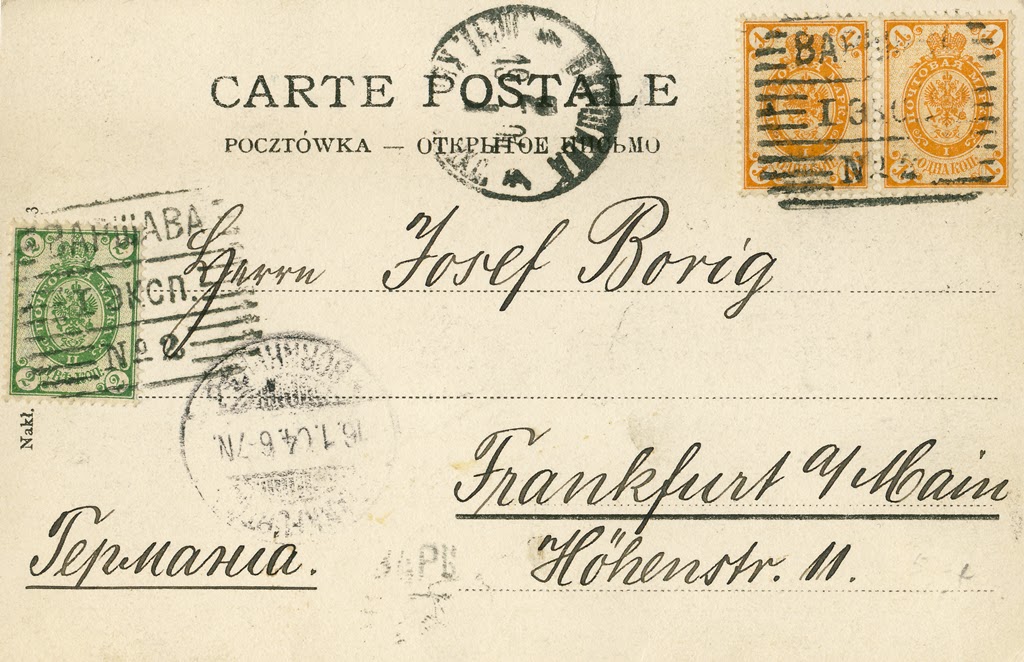 CARTE POSTALE
POCZTÓWKA — ОТКРЫТОЕ ПИСЬМО
ВАРШАВА
ВАРШАВА
I ЭКСП.
№ 2
I ЭКС
№ 2
Herrn Josef Borig
16.1.04. 6-7N.
Frankfurt a/Main
Höhenstr. 11.
Германiа.
Nakł.